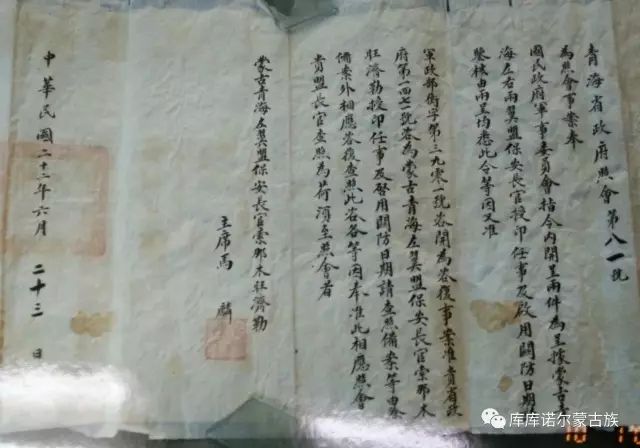 青海省政府照會 第八一號
為照會事案奉
國民政府軍事委員會指令內開呈兩件為呈據蒙古青
海左右兩翼盟保安長官授印任事及啟用關防日期
鑒核由兩呈均悉此令等因又准
軍政部衡字第三九零一號咨開為咨復事案准貴省政
府第一四七號咨為蒙古青海左翼盟保安長官索那木
旺濟勒授印任事及啓用關防日期請查照備案等由除
備案外相應咨復查照此咨各等因奉准此相應照會
貴盟長官查照為荷須至照會者
蒙古青海左翼盟保安長官索那木旺濟勒
主席馬麟
中華民國二十三年六月 二十三 日
库库诺尔蒙古族
10 17